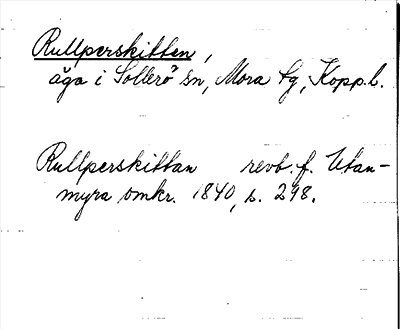 Rullperskitten,
äga i Sollerö sn, Mora tg, Kopp. l.
Rullperskittan revb. f. Utan-
myra omkr. 1840, s. 298.